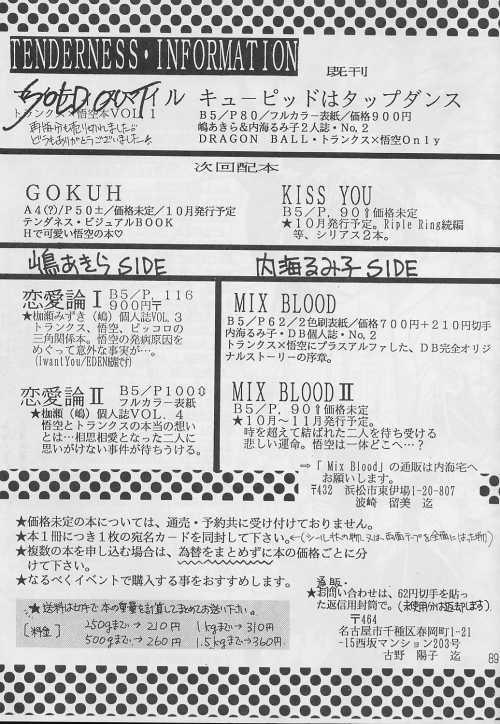 TENDERNESS・INFORMATION
既刊
SOLD OUT
イル
トランクス×悟空本VOL.1
再版分も売り切れました
どうもありがとうございました
キューピッドはタップダンス
B5/P80/フルカラー表紙/価格900円
嶋あきら&内海るみ子2人誌・No.2
DRAGON BALL・トランクス×悟空Only
次回配本
GOKUH
A4(?)/P50±/価格未定/10月発行予定
テンダネス・ビジュアルBOOK
Hで可愛い悟空の本♡
KISS YOU
B5/P,90⇧価格未定
★10月発行予定。Riple Ring続編
等、シリアス2本。
嶋あきらSIDE
内海るみ子SIDE
恋愛論Ⅰ B5/P,116
900円〒
★梛瀬みずき(嶋)個人誌VOL.3
トランクス、悟空、ピッコロの
三角関係本。悟空の発病原因を
めぐって意外な事実が…。
(IwantYou/EDEN続編です)
恋愛論Ⅱ B5/P100⇳
フルカラー表紙
★梛瀬(嶋)個人誌VOL.4
悟空とトランクスの本当の想い
とは…相思相愛となった二人に
思いがけない事件が待ちうける。
MIX BLOOD
B5/P62/2色刷表紙/価格700円+210円切手
内海るみ子・DB個人誌
トランクス×悟空にプラスアルファした、DB完全オリ
ジナルストーリーの序章。
MIX BLOODⅡ
B5/P,90⇧価格未定
★10月~11月発行予定。
時を超えて結ばれた二人を待ち受ける
悲しい運命。悟空は一体どこへ…?
⇒「Mix Blood」の通販は内海宅へ
お願いします。
〒432 浜松市東伊場1-20-807
波崎 留美 迄
★価格未定の本については、通売・予約共に受け付けておりません。
★本1冊につき1枚の宛名カードを同封して下さい。←(シール付きの物、又は両面テープを全面にはった物)
★複数の本を申し込む場合は、為替をまとめずに本の価格ごとに分
けて下さい。
★なるべくイベントで購入する事をおすすめします。
★送料は切手で本の重量を計算してまとめてお送り下さい。
[料金] 250gまで→210円 1kgまで→310円
500gまで→260円 1.5kgまで→360円
通販・
★お問い合わせは、62円切手を貼っ
た返信用封筒で。(未使用分は返却します)
〒464
名古屋市千種区春岡町1-21
-15西坂マンション203号
古野 陽子 迄
89